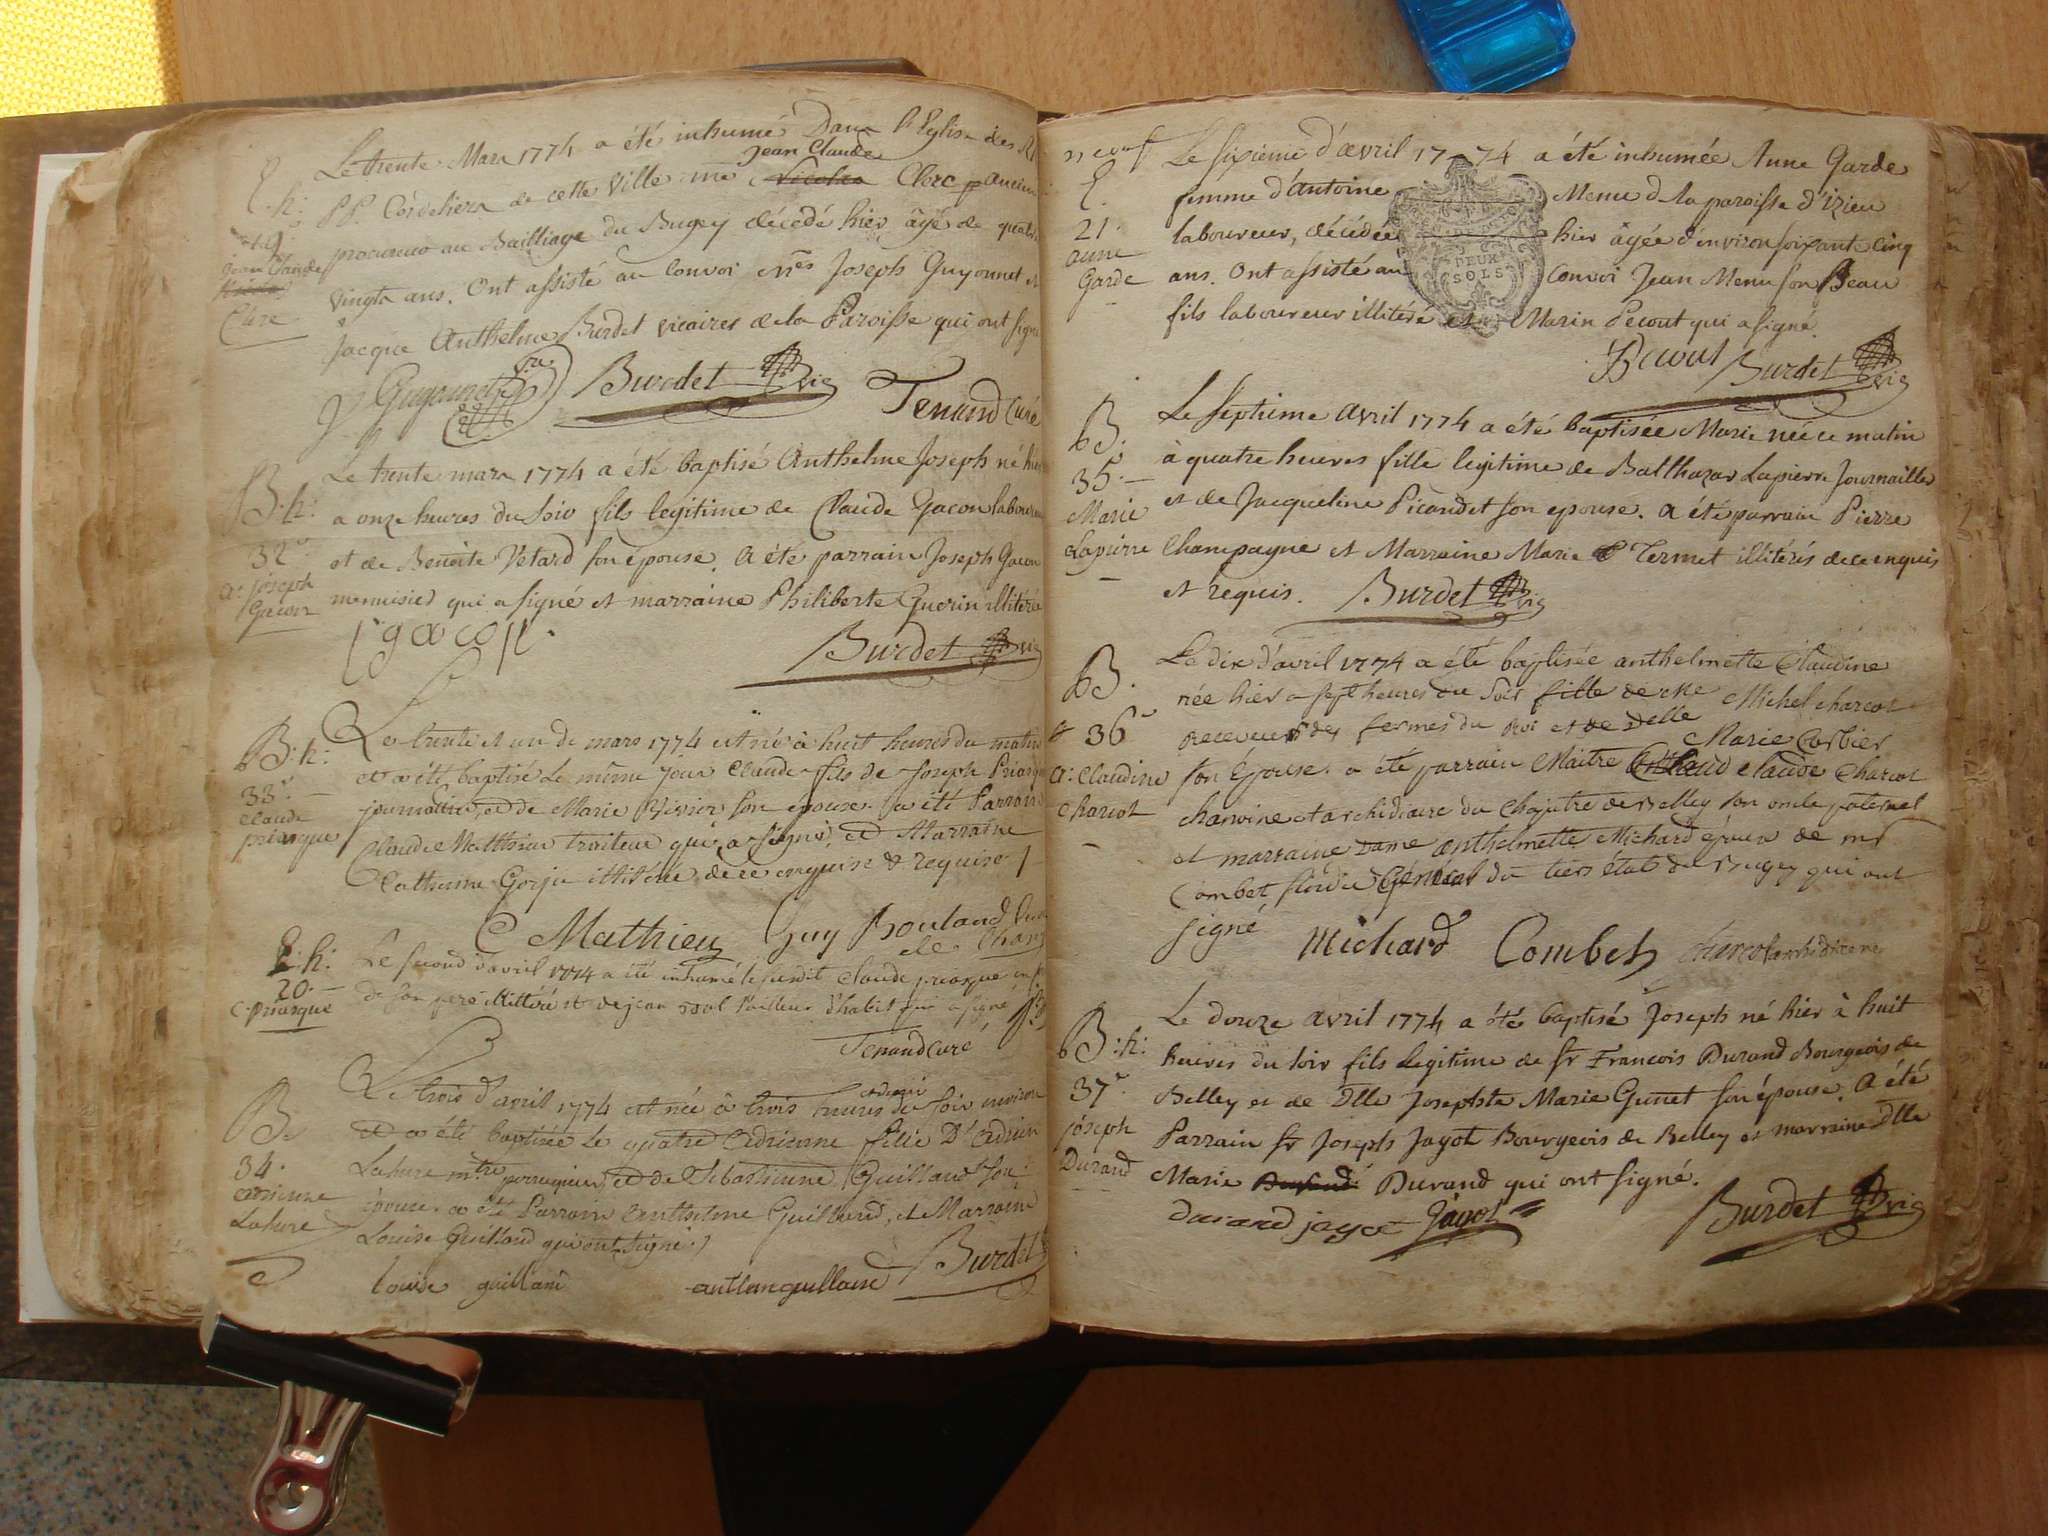 Le trente Mars 1774 a été inhumé Dans l'Eglise des
Jean Claude
PP. Cordeliers de cette Ville me Nicolas Clerc ancien
procureur au Bailliage du Bugey décédé hier âgé de quatre
vingts ans. Ont assisté au Convoi Mes Joseph Guyonnet et
Jacque Anthelme Burdet vicaires de la Paroisse qui ont signé
E. h:
19
Jean Claude
Clerc
Guyonnet Burdet vic Tenand Curé
Le trente mars 1774 a été baptisé Anthelme Joseph né hier
a onze heures du soir fils legitime de Claude Gacon laboureur
et de Benoite Vetard son épouse. A été parrain Joseph Gacon
menuisier qui a signé et marraine Philiberte Guerin illitérée
B. h:
32
A: Joseph
Gacon
gacon
Burdet vic
Le trente et un de mars 1774 est né à huit heures du matin
et a été baptisé Le même jour Claude fils de Joseph Priasque
journalier, et de Marie Vivier son épouse a été Parrain
Claude Matthieu traiteur qui a signé, et Marraine
Catherine Gorju illitérée de ce enquise & requise
B. h:
33
Claude
priasque
C Mathieu Guy Bouland
de
Le second d'avril 1774 a été inhumé le susdit Claude priasque
de son pere illittéré et de jean tailleur d'habit qui a signé
E. h:
20.
C. priasque
Tenand curé
Le trois d'avril 1774 est née à trois heures du soir environ
et a été baptisée Le quatre Adrienne fille D'Adrien
Lahure mtre perruquier, et de Sebastienne Guilland son
épouse. a été Parrain Anthelme Guilland, et Marraine
Louise Guilland qui ont signé.
B.
34.
Adrienne
Lahure
louise guilland Burdet
neuf
Le sixieme d'avril 1774 a été inhumée Anne Garde
femme d'Antoine Menu de la paroisse d'Izieu
laboureur, décédée hier âgée d'environ soixante cinq
ans. Ont assisté au Convoi Jean Menu son Beau
fils laboureur illitéré et Marin Decout qui a signé.
E.
21.
anne
Garde
DEUX
SOLS
Decout Burdet vic
Le septieme Avril 1774 a été baptisée Marie née ce matin
à quatre heures fille legitime de Balthazar Lapierre Journaillier
et de Jacqueline Picandet son epouse. a été parrain Pierre
Champagne et Marraine Marie Termet illitérés de ce enquis
et requis. Burdet vic
B.
35.
Marie
Lapierre
Le dix d'avril 1774 a été baptisée anthelmette Claudine
née hier a sept heures du soir fille de Me Michel charcot
receveur des fermes du Roi et de delle Marie Corbier
son Epouse. a été parrain Maitre Claude Charcot
chanoine et archidiacre du Chapitre de Belley son oncle paternel
et marraine Dame anthelmette Michard épouse de mr
Combet sindic Général du tiers état du Bugey qui ont
signé
B.
36
A: Claudine
Charcot
Michard Combet charcot archidiacre
Le douze avril 1774 a été baptisé Joseph né hier à huit
heures du soir fils Legitime de Sr Francois Durand Bourgeois de
Belley et de Dlle Josephte Marie Gunet son épouse. A été
Parrain Sr Joseph Jagot Bourgeois de Belley et marraine Dlle
Marie Durand qui ont signé.
B: h:
37
joseph
Durand
durand jagot Jagot Burdet vic